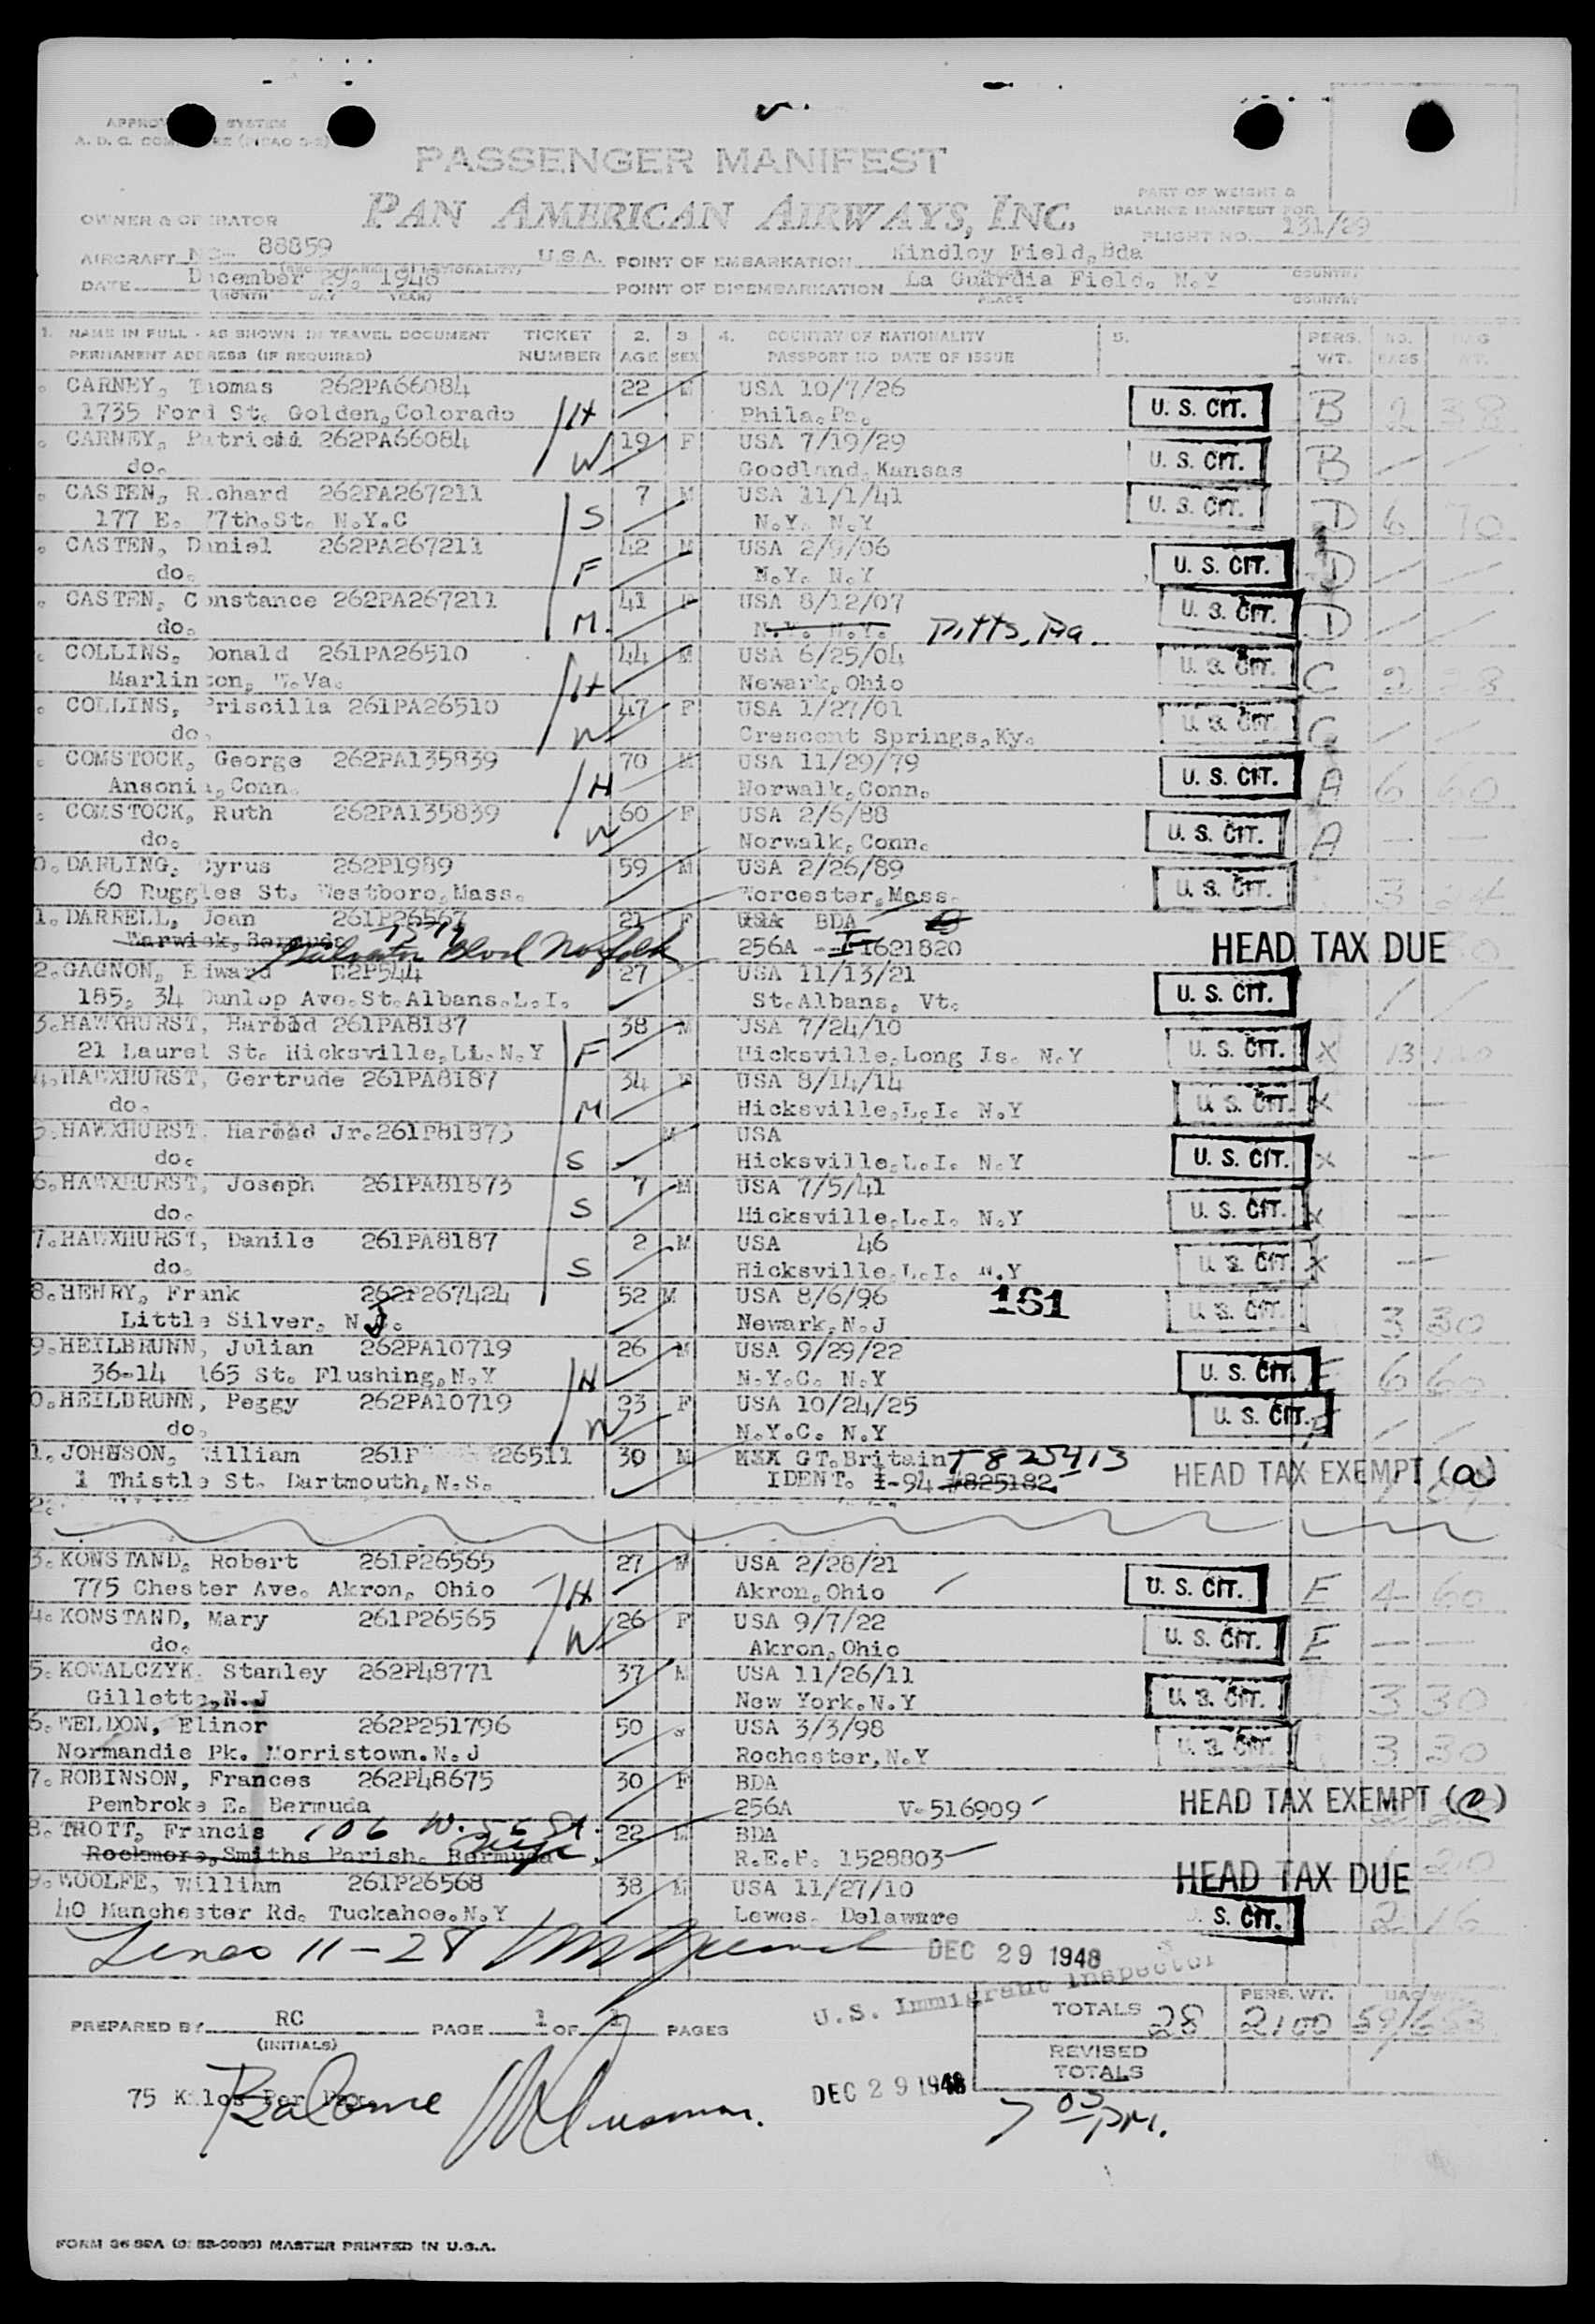 PASSENGER MANIFEST
PAN AMERICAN AIRWAYS, INC.
PART OF WEIGHT &
BALANCE MANIFEST FOR
OWNER & OPERATOR
FLIGHT NO. 131/29
AIRCRAFT NC- 88859 U.S.A. POINT OF EMBARKATION Kindley Field, Bda
DATE December 29, 1948 POINT OF DISEMBARKATION La Guardia Field, N.Y
(MONTH DAY YEAR) PLACE COUNTRY
1. NAME IN FULL - AS SHOWN IN TRAVEL DOCUMENT TICKET 2. 3 4. COUNTRY OF NATIONALITY 5. PERS. NO. BAG
PERMANENT ADDRESS (IF REQUIRED) NUMBER AGE SEX PASSPORT NO DATE OF ISSUE WT. PAGS WT.
CARNEY, Thomas 262PA66084 22 M USA 10/7/26
1735 Ford St. Golden, Colorado H Phila. Pa. U. S. CIT. B 2 38
CARNEY, Patricia 262PA66084 19 F USA 7/19/29
do. W Goodland, Kansas U. S. CIT. B
CASTEN, Richard 262PA267211 7 M USA 11/1/41
177 E. 77th. St. N.Y.C S N.Y. N.Y U. S. CIT. D 6 70
CASTEN, Daniel 262PA267211 42 M USA 2/9/06
do. F N.Y. N.Y U. S. CIT. D
CASTEN, Constance 262PA267211 41 F USA 8/12/07
do. M. N.Y. N.Y. Pitts, Pa. U. S. CIT. D
COLLINS, Donald 261PA26510 44 M USA 6/25/04
Marlinton, W.Va. H Newark, Ohio U. S. CIT. C 2 28
COLLINS, Priscilla 261PA26510 47 F USA 1/27/01
do. W Crescent Springs, Ky. U. S. CIT. C
COMSTOCK, George 262PA135839 70 M USA 11/29/79
Ansonia, Conn. H Norwalk, Conn. U. S. CIT. A 6 60
COMSTOCK, Ruth 262PA135839 60 F USA 2/6/88
do. W Norwalk, Conn. U. S. CIT. A
0. DARLING, Cyrus 262P1989 59 M USA 2/26/89
60 Ruggles St. Westboro, Mass. Worcester, Mass. U. S. CIT. 3 24
1. DARRELL, Joan 261P26567 21 F BDA
Warwick, Bermuda Blvd Norfolk 256A - I 1621820 HEAD TAX DUE
2. GAGNON, Edward B2P544 27 USA 11/13/21
185, 34 Dunlop Ave. St. Albans. L.I. St. Albans, Vt. U. S. CIT.
3. HAWXHURST, Harold 261PA8187 38 M USA 7/24/10
21 Laurel St. Hicksville, LI. N.Y F Hicksville, Long Is. N.Y U. S. CIT. X 13
4. HAWXHURST, Gertrude 261PA8187 34 F USA 8/14/14
do. M Hicksville, L.I. N.Y U. S. CIT. X
5. HAWXHURST, Harold Jr. 261P81873 M USA
do. S Hicksville, L.I. N.Y U. S. CIT. X
6. HAWXHURST, Joseph 261PA81873 7 M USA 7/5/41
do. S Hicksville, L.I. N.Y U. S. CIT. X
7. HAWXHURST, Danile 261PA8187 2 M USA 46
do. S Hicksville, L.I. N.Y U. S. CIT X
8. HENRY, Frank 262P267424 52 M USA 8/6/96 161
Little Silver, N.J. Newark, N.J U. S. CIT. 3 30
9. HEILBRUNN, Julian 262PA10719 26 M USA 9/29/22
36-14 165 St. Flushing, N.Y H N.Y.C. N.Y U. S. CIT. F 6 60
0. HEILBRUNN, Peggy 262PA10719 23 F USA 10/24/25
do. W N.Y.C. N.Y U. S. CIT. F
1. JOHNSON, William 261P 26511 30 M GT. Britain T 825413
1 Thistle St. Dartmouth, N.S. IDENT. I-94 #825182 HEAD TAX EXEMPT (a)
2.
3. KONSTAND, Robert 261P26565 27 M USA 2/28/21
775 Chester Ave. Akron, Ohio H Akron, Ohio U. S. CIT. E 4 60
4. KONSTAND, Mary 261P26565 26 F USA 9/7/22
do. W Akron, Ohio U. S. CIT. E
5. KOWALCZYK, Stanley 262P48771 37 M USA 11/26/11
Gillette, N.J New York, N.Y U. S. CIT. 3 30
6. WELDON, Elinor 262P251796 50 USA 3/3/98
Normandie Pk. Morristown. N.J Rochester, N.Y U. S. CIT. 3 30
7. ROBINSON, Frances 262P48675 30 F BDA
Pembroke E. Bermuda 256A V-516909 HEAD TAX EXEMPT
8. TROTT, Francis 106 W. 56 St. 22 M BDA
Rockmore, Smiths Parish. Bermuda R.E.P. 1528803 HEAD TAX DUE 20
9. WOOLFE, William 261P26568 38 M USA 11/27/10
40 Manchester Rd. Tuckahoe. N.Y Lewes. Delaware S. CIT. 2 16
Lines 11-28 DEC 29 1948
U.S. Immigrant Inspector
TOTALS 28 PERS. WT. 2100 BAG WT. 59/653
PREPARED BY RC PAGE 1 OF 1 PAGES
(INITIALS)
REVISED
TOTALS
75 Kilos Per Pax
DEC 29 1948
7 05 PM.
FORM 36-32A MASTER PRINTED IN U.S.A.